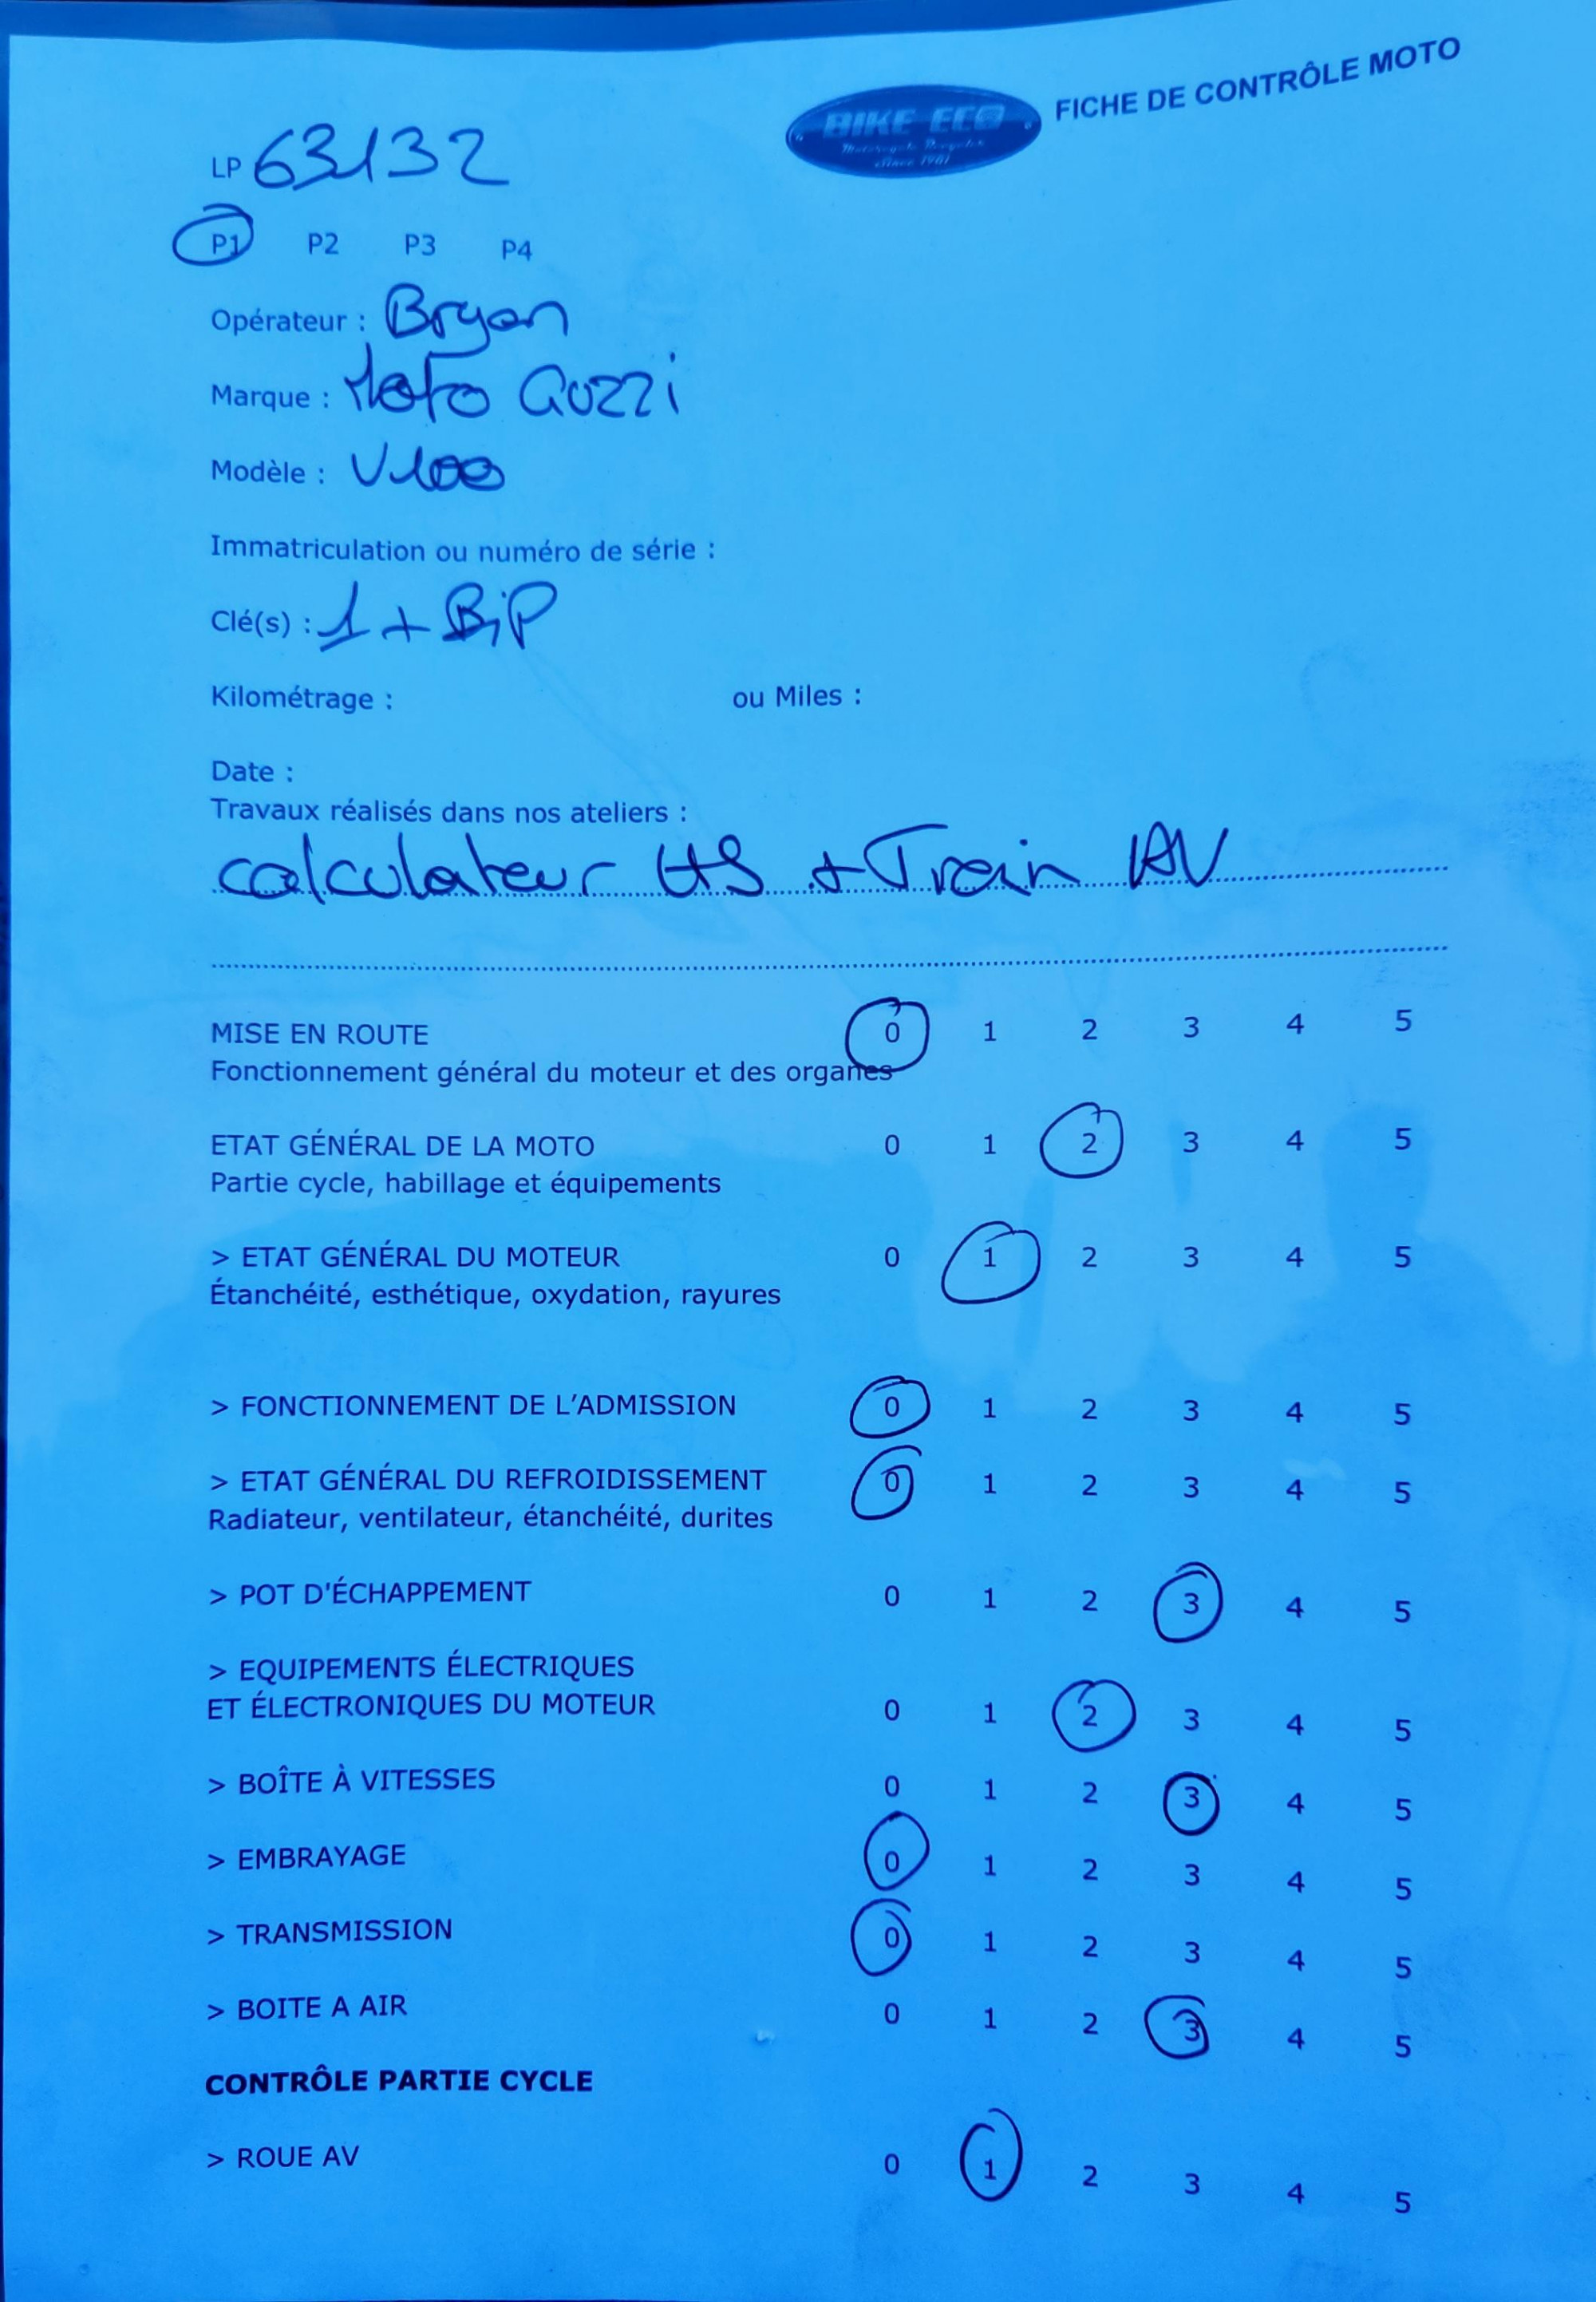 BIKE ECO
Motorcycle Recycler
Since 1981
FICHE DE CONTRÔLE MOTO
LP 63132
P1 P2 P3 P4
Opérateur : Bryan
Marque : Moto Guzzi
Modèle : V100
Immatriculation ou numéro de série :
Clé(s) : 1 + BiP
Kilométrage : ou Miles :
Date :
Travaux réalisés dans nos ateliers :
calculateur HS + Train AV
MISE EN ROUTE 0 1 2 3 4 5
Fonctionnement général du moteur et des organes
ETAT GÉNÉRAL DE LA MOTO 0 1 2 3 4 5
Partie cycle, habillage et équipements
> ETAT GÉNÉRAL DU MOTEUR 0 1 2 3 4 5
Étanchéité, esthétique, oxydation, rayures
> FONCTIONNEMENT DE L'ADMISSION 0 1 2 3 4 5
> ETAT GÉNÉRAL DU REFROIDISSEMENT 0 1 2 3 4 5
Radiateur, ventilateur, étanchéité, durites
> POT D'ÉCHAPPEMENT 0 1 2 3 4 5
> EQUIPEMENTS ÉLECTRIQUES
ET ÉLECTRONIQUES DU MOTEUR 0 1 2 3 4 5
> BOÎTE À VITESSES 0 1 2 3 4 5
> EMBRAYAGE 0 1 2 3 4 5
> TRANSMISSION 0 1 2 3 4 5
> BOITE A AIR 0 1 2 3 4 5
CONTRÔLE PARTIE CYCLE
> ROUE AV 0 1 2 3 4 5